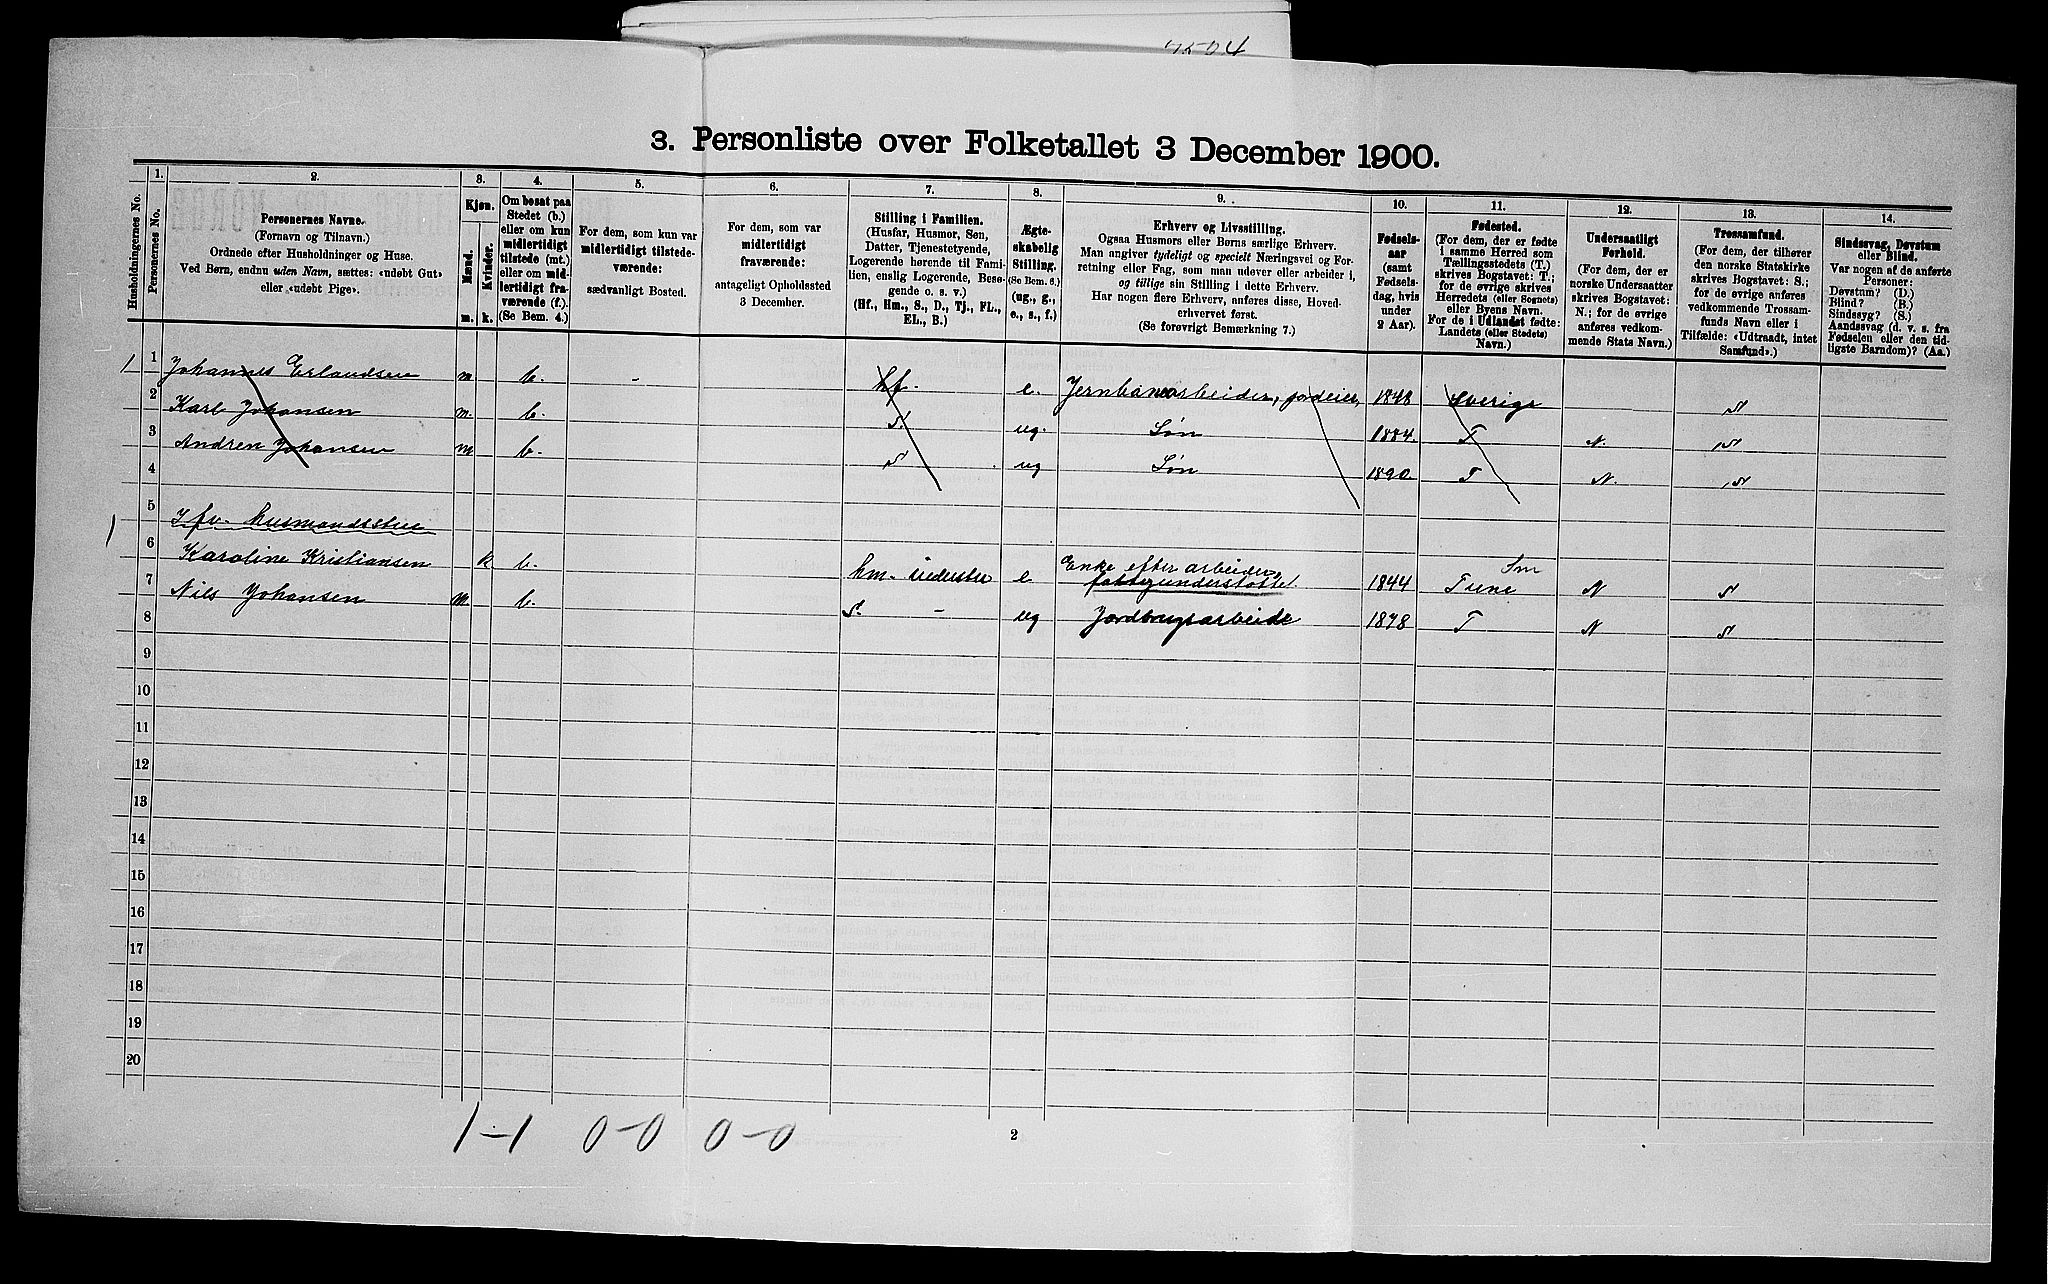 4504
3. Personliste over Folketallet 3 December 1900.
1. 2. 3. 4. 5. 6. 7. 8. 9. 10. 11. 12. 13. 14.
Husholdningernes No.
Personernes No.
Personernes Navne.
(Fornavn og Tilnavn.)
Ordnede efter Husholdninger og Huse.
Ved Børn, endnu uden Navn, sættes: «udøbt Gut»
eller «udøbt Pige».
Kjøn.
Mænd.
Kvinder.
m. k.
Om bosat paa
Stedet (b.)
eller om kun
midlertidigt
tilstede (mt.)
eller om mid-
lertidigt fra-
værende (f.).
(Se Bem. 4.)
For dem, som kun var
midlertidigt tilstede-
værende:
sædvanligt Bosted.
For dem, som var
midlertidigt
fraværende:
antageligt Opholdssted
3 December.
Stilling i Familien.
(Husfar, Husmor, Søn,
Datter, Tjenestetyende,
Logerende hørende til Fami-
lien, enslig Logerende, Besø-
gende o. s. v.)
(Hf., Hm., S., D., Tj., FL.,
EL., B.)
Ægte-
skabelig
Stilling.
(Se Bem. 6.)
(ug., g.,
e., s., f.)
Erhverv og Livsstilling.
Ogsaa Husmors eller Børns særlige Erhverv.
Man angiver tydeligt og specielt Næringsvei og For-
retning eller Fag, som man udøver eller arbeider i,
og tillige sin Stilling i dette Erhverv.
Har nogen flere Erhverv, anføres disse, Hoved-
erhvervet først.
(Se forøvrigt Bemærkning 7.)
Fødsels-
aar
(samt
Fødsels-
dag, hvis
under
2 Aar).
Fødested.
(For dem, der er fødte
i samme Herred som
Tællingsstedets (T.)
skrives Bogstavet: T;
for de øvrige skrives
Herredets (eller Sognets)
eller Byens Navn.
For de i Udlandet fødte:
Landets (eller Stedets)
Navn.)
Undersaatligt
Forhold.
(For dem, der er
norske Undersaatter
skrives Bogstavet:
N.; for de øvrige
anføres vedkom-
mende Stats Navn.)
Trossamfund.
(For dem, der tilhører
den norske Statskirke
skrives Bogstavet: S.;
for de øvrige anføres
vedkommende Trossam-
funds Navn eller i
Tilfælde: «Udtraadt, intet
Samfund».)
Sindssvag, Døvstum
eller Blind.
Var nogen af de anførte
Personer:
Døvstum? (D.)
Blind? (B.)
Sindssyg? (S.)
Aandssvag (d. v. s. fra
Fødselen eller den tid-
ligste Barndom)? (Aa.)
1 1 Johannes Erlandsen m b. - hf. e. Jernbanearbeider, jordeier, 1848 Sverige S
2 Karl Johansen m. b. S. ug. Søn 1884. T N. S
3 Andren Johansen m b. S ug Søn 1890. T N. S
4
5 Ifv. husmandsstue
1 6 Karoline Kristiansen k b. hm. e Enke efter arbeider, fattigunderstøttet 1844 Tune N S
7 Nils Johansen m. b. S. - ug Jordbrugsarbeide 1878 T N S
8
9
10
11
12
13
14
15
16
17
18
19
20
1-1 0-0 0-0
2